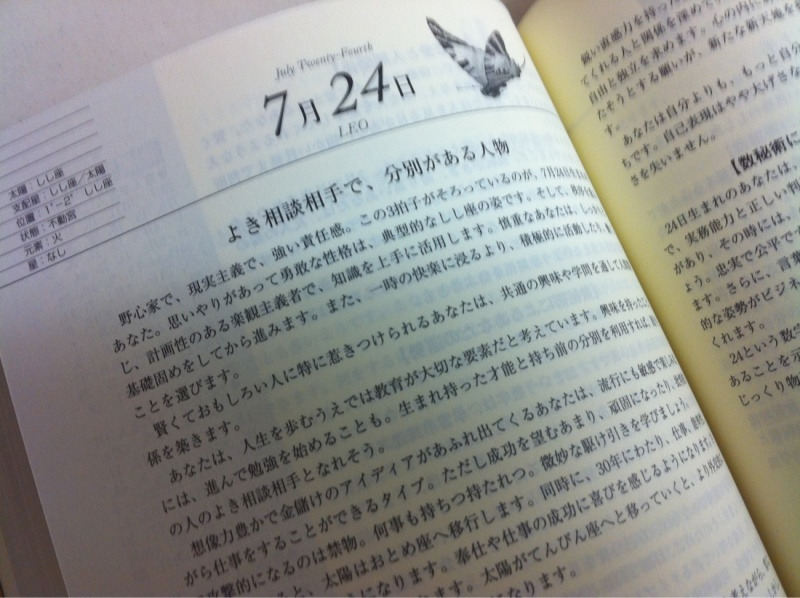 July Twenty-Fourth
7月24日
LEO
太陽：しし座
支配星：しし座／太陽
位置：1°–2° しし座
状態：不動宮
元素：火
星：なし
よき相談相手で、分別がある人物
野心家で、現実主義で、強い責任感。この3拍子がそろっているのが、7月24日生まれの
あなた。思いやりがあって勇敢な性格は、典型的なしし座の姿です。そして、
じ、計画性のある楽観主義者で、知識を上手に活用します。慎重なあなたは、しっかり
基礎固めをしてから進みます。また、一時の快楽に浸るより、積極的に活動したり、
ことを選びます。
賢くておもしろい人に特に惹きつけられるあなたは、共通の興味や学問を通して人間関
係を築きます。
あなたは、人生を歩むうえでは教育が大切な要素だと考えています。興味を持ったこと
には、進んで勉強を始めることも。生まれ持った才能と持ち前の分別を利用すれば、
の人のよき相談相手となれそう。
想像力豊かで金儲けのアイディアがあふれ出てくるあなたは、流行にも敏感で楽しみな
がら仕事をすることができるタイプ。ただし成功を望むあまり、頑固になったり、
攻撃的になるのは禁物。何事も持ちつ持たれつ。微妙な駆け引きを学びましょう。
ると、太陽はおとめ座へ移行します。同時に、30年にわたり、仕事、
になります。奉仕や仕事の成功に喜びを感じるようになります
太陽がてんびん座へと移っていくと、より
になります。
鋭い直感力を持った
てくれる人と関係を深めて
自由と独立を求めます。心の内に
たそうとする願いが、新たな新天地を
す。
あなたは自分よりも、もっと自分
ちです。自己表現はやや大げさな
さを失いません。
【数秘術に
24日生まれのあなたは、
で、実務能力と正しい判
があり、その時には、
ょう。忠実で公平で
ます。さらに、言葉
的な姿勢がビジネ
くれます。
24という数字
あることを元
じっくり物